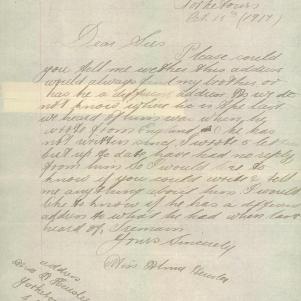 Yorketown
Oct. 15th (1917)
Dear Sirs
Please could
you tell me wether this address
would always find my brother or
has he a different address as we do
not know where he is the last
we heard of him was when he
wrote from England & he has
not written since, I wrote a letter
but up to date have had no reply
from him So I would like to
know if you could write & tell
me anything about him I would
like to know if he has a different
address to what he had when last
heard of, I remain
Yours Sincerely
Miss
address
Yorketown